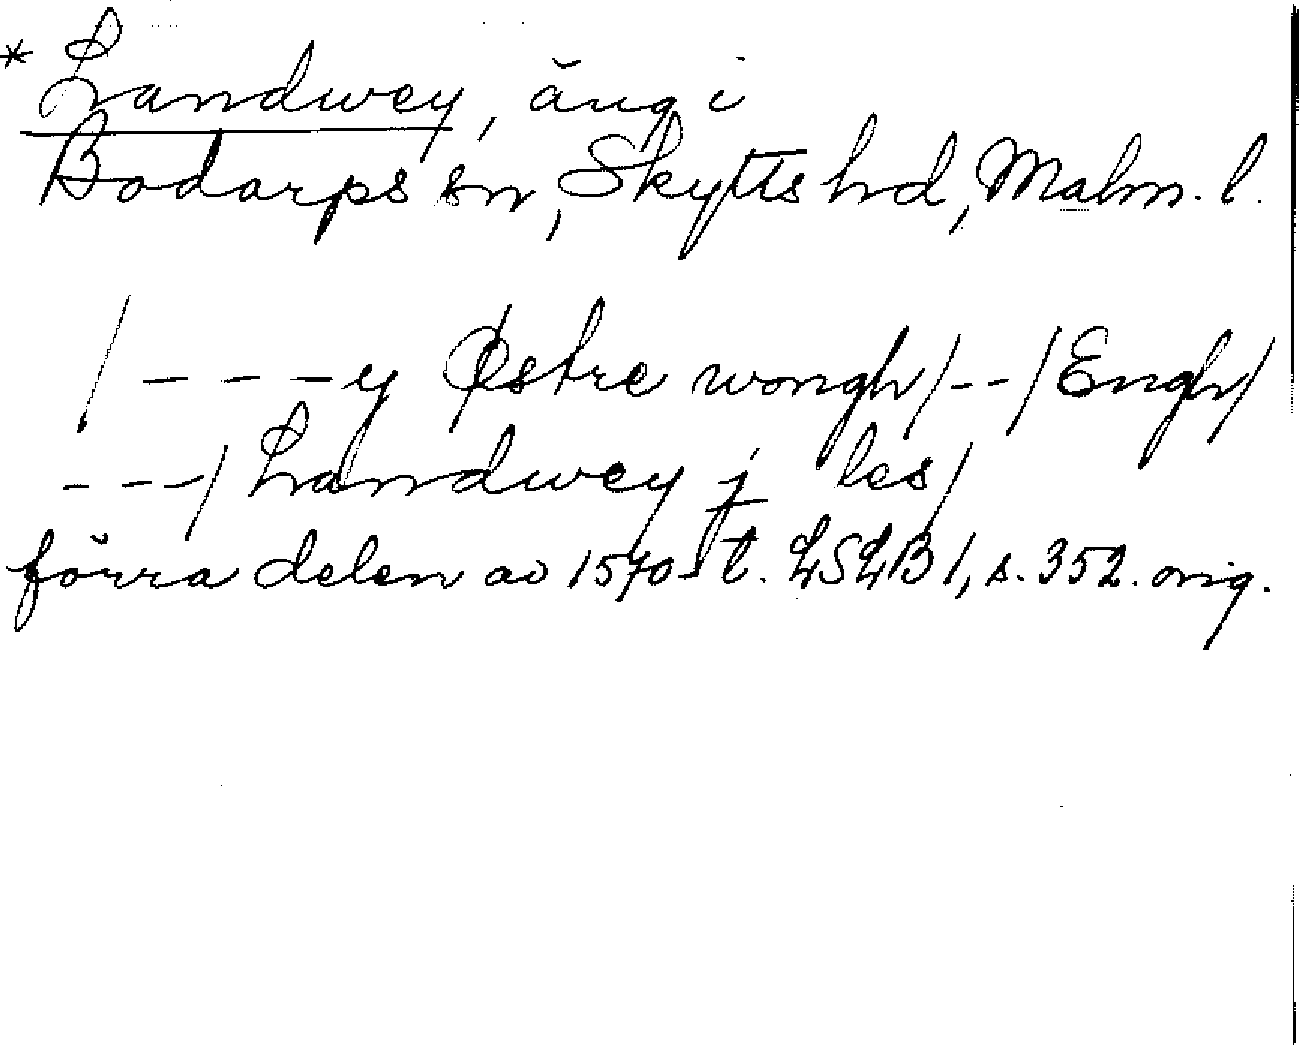 * Landwey, äng i
Bodarps sn, Skytts hd, Malm. l.
/ - - - y Østre wongh / - - / Engh /
- - - / Landwey j les /
förra delen av 1570-t. LSLB 1, s. 352. orig.